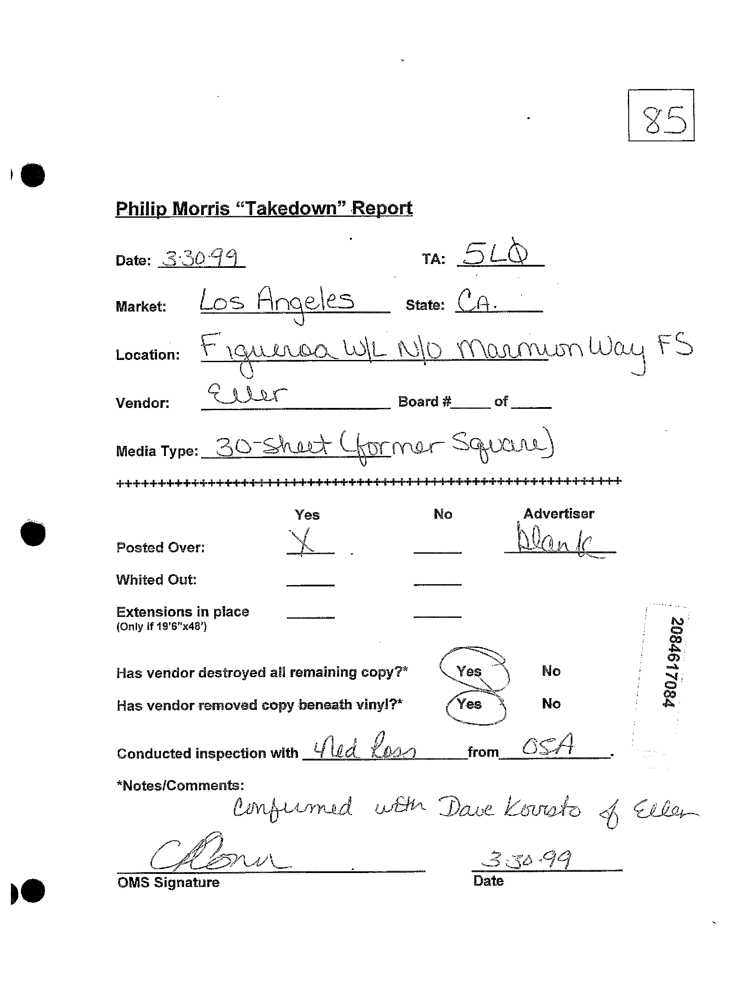 85
Philip Morris "Takedown" Report
Date: 3-30-99 TA: 5LO
Market: Los Angeles State: CA.
Location: Figueroa W/L N/O Marmion Way FS
Vendor: Eller Board #____ of ____
Media Type: 30-Sheet (former Square)
++++++++++++++++++++++++++++++++++++++++++++++++++++++++++++
Yes No Advertiser
Posted Over: X ____ blank
Whited Out: ____ ____
Extensions in place ____ ____
(Only if 19'6"x48')
Has vendor destroyed all remaining copy?* Yes No
Has vendor removed copy beneath vinyl?* Yes No
Conducted inspection with Ned Ross from OSA.
*Notes/Comments:
Confirmed with Dave of Eller
3-30-99
OMS Signature Date
2084617084